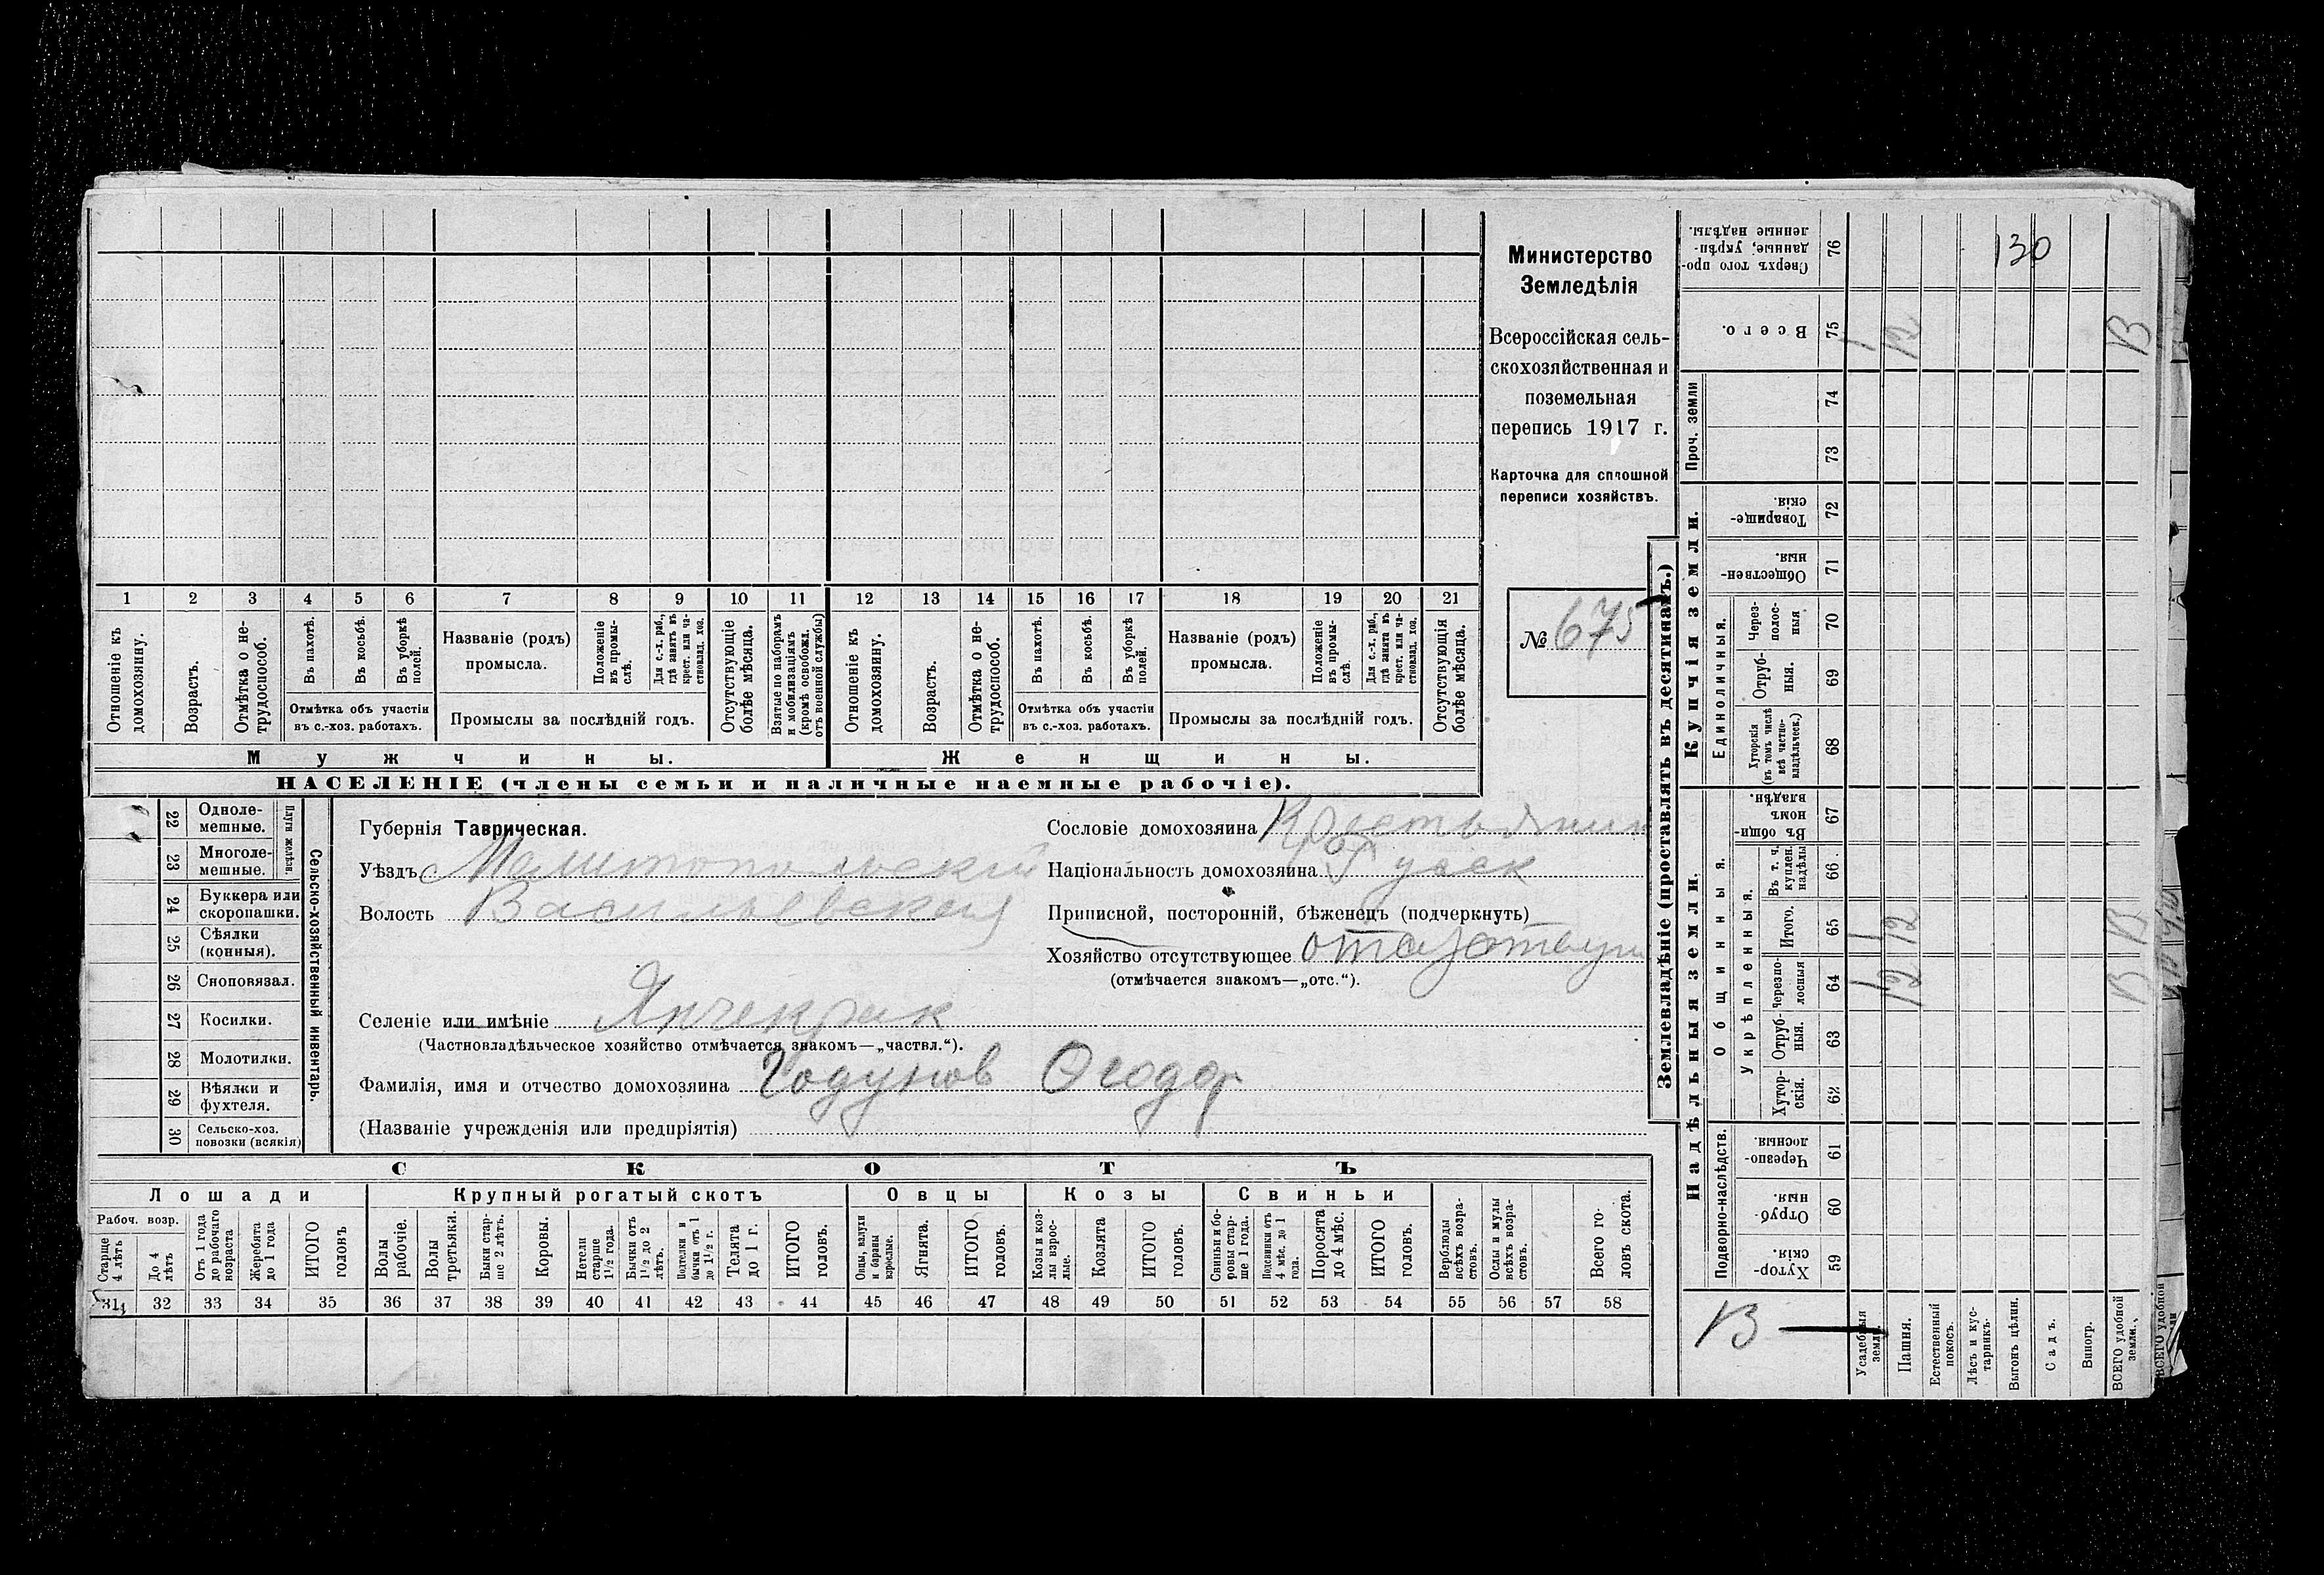 1 2 3 4 5 6 7 8 9 10 11 12 13 14 15 16 17 18 19 20 21
Отношеніе къ домохозяину.
Возрастъ.
Отмѣтка о не-
трудоспособ.
Въ пахотѣ.
Въ косьбѣ.
Въ уборкѣ полей.
Отмѣтка объ участіи
въ с.-хоз. работахъ.
Названіе (родъ)
промысла.
Положеніе въ промы-
слѣ.
Для с.-х. раб., гдѣ занятъ въ крест. или ча-
стновлад. хоз.
Промыслы за послѣдній годъ.
Отсутствующіе болѣе мѣсяца.
Взятые по наборамъ и мобилизаціямъ (кромѣ освобожл. отъ военной службы)
Отношеніе къ домохозяину.
Возрастъ.
Отмѣтка о не-
трудоспособ.
Въ пахотѣ.
Въ косьбѣ.
Въ уборкѣ полей.
Отмѣтка объ участіи
въ с.-хоз. работахъ.
Названіе (родъ)
промысла.
Положеніе въ промы-
слѣ.
Для с.-х. раб., гдѣ занята въ крест. или ча-
стновлад. хоз.
Промыслы за послѣдній годъ.
Отсутствующія болѣе мѣсяца.
Мужчины.
Женщины.
НАСЕЛЕНІЕ (члены семьи и наличные наемные рабочіе).
Министерство
Земледѣлія
Всероссійская сель-
скохозяйственная и
поземельная
перепись 1917 г.
Карточка для сплошной
переписи хозяйствъ.
№ 675
Сельско-хозяйственный инвентарь.
Плуги желѣзн.
22 Одноле-
мешные.
23 Многоле-
мешные.
24 Буккера или
скоропашки.
25 Сѣялки
(конныя).
26 Сноповязал.
27 Косилки.
28 Молотилки.
29 Вѣялки и
фухтеля.
30 Сельско-хоз.
повозки (всякія)
Губернія Таврическая.
Уѣздъ Мелитопольскій
Волость Васильевская
Сословіе домохозяина Крестьянин
Національность домохозяина Руск
Приписной, посторонній, бѣженецъ (подчеркнуть)
Хозяйство отсутствующее отсутствую
(отмѣчается знакомъ—„отс.“).
Селеніе или имѣніе Янчекрак
(Частновладѣльческое хозяйство отмѣчается знакомъ—„частвл.“).
Фамилія, имя и отчество домохозяина Годунов Ѳеодор
(Названіе учрежденія или предпріятія)
СКОТЪ
Лошади
Рабоч. возр.
Старше 4 лѣтъ
До 4 лѣтъ
Отъ 1 года до рабочаго возраста
Жеребята до 1 года
ИТОГО головъ
Крупный рогатый скотъ
Волы рабочіе.
Волы третьяки.
Быки стар-
ше 2 лѣтъ.
Коровы.
Нетели старше 1½ года.
Бычки отъ 1½ до 2 лѣтъ.
Подтелки и бычки отъ 1 до 1½ г.
Телята до 1 г.
ИТОГО головъ.
Овцы
Овцы, валухи и бараны взрослые.
Ягнята.
ИТОГО головъ.
Козы
Козы и коз-
лы взрос-
лые.
Козлята
ИТОГО головъ.
Свиньи
Свиньи и бо-
ровы стар-
ше 1 года.
Подсвинки отъ 4 мѣс. до 1 года.
Поросята до 4 мѣс.
ИТОГО головъ.
Верблюды всѣхъ возра-
стовъ.
Ослы и мулы всѣхъ возра-
стовъ.
Всего го-
ловъ скота.
31 32 33 34 35 36 37 38 39 40 41 42 43 44 45 46 47 48 49 50 51 52 53 54 55 56 57 58
Землевладѣніе (проставлять въ десятинахъ.)
Купчія земли.
Надѣльныя земли.
Проч. земли
Единоличныя.
Общинныя.
Укрѣпленныя.
Подворно-наслѣдств.
76 Сверхъ того про-
данные, укрѣп-
ленные надѣлы.
130
75 Всего. 1 12 13
74
73
72 Товарище-
скія.
71 Обществен-
ныя.
70 Через-
полос-
ныя
69 Отруб-
ныя.
68 Хуторскія (въ томъ числѣ всѣ частно-
владѣльческ.)
67 Въ общин-
номъ
владѣн.
66 Въ т. ч. куплен. надѣлы
65 Итого. 1 12 13
64 Черезпо-
лосныя 1 12 13
63 Отруб-
ныя.
62 Хутор-
скія.
61 Черезпо-
лосныя.
60 Отруб-
ныя.
59 Хутор-
скія.
13
Усадебныя земли.
Пашня.
Естественный покосъ.
Лѣсъ и кус-
тарникъ.
Выгонъ цѣлин.
Садъ.
Виногр.
ВСЕГО удобной земли.
ВСЕГО удобной